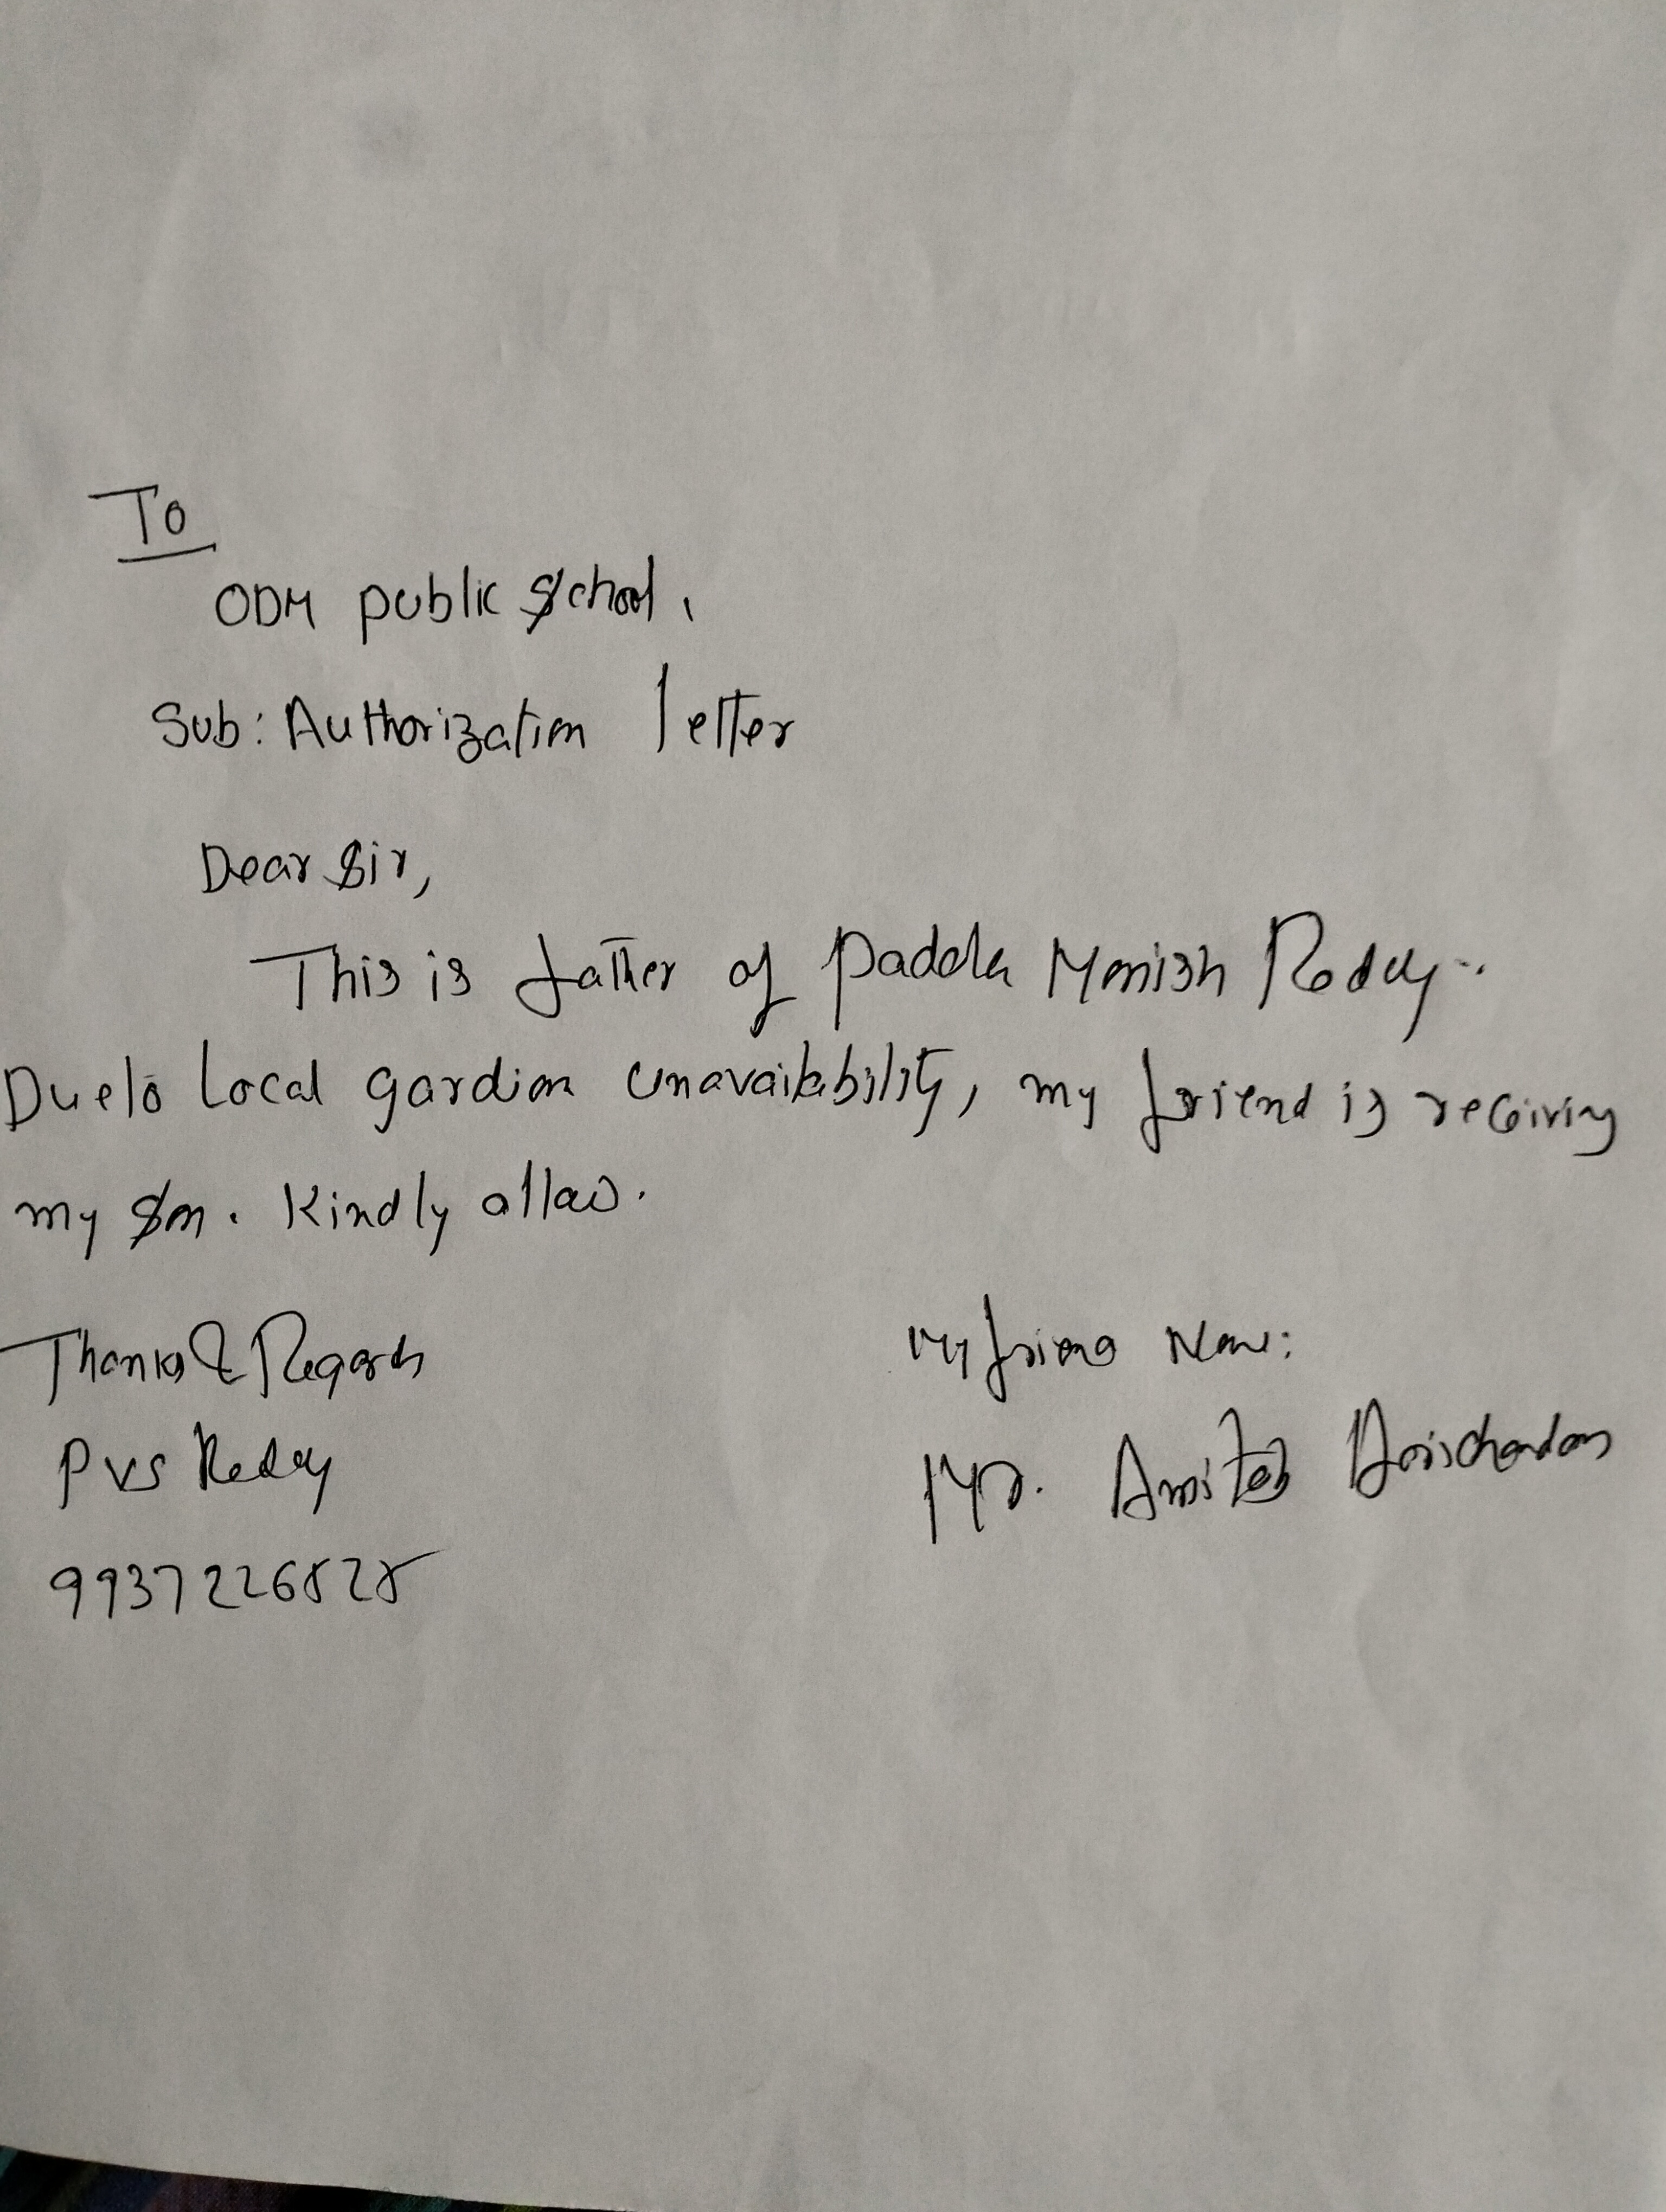 To
ODM public School,
Sub: Authorization letter
Dear Sir,
This is father of Padala Monish Reddy..
Dueto Local gardian unavailability, my friend is receiving
my son. Kindly allow.
Thanks & Regards
PVS Reddy
9937226828
My friend Name:
Mr. Amitab Harischandan